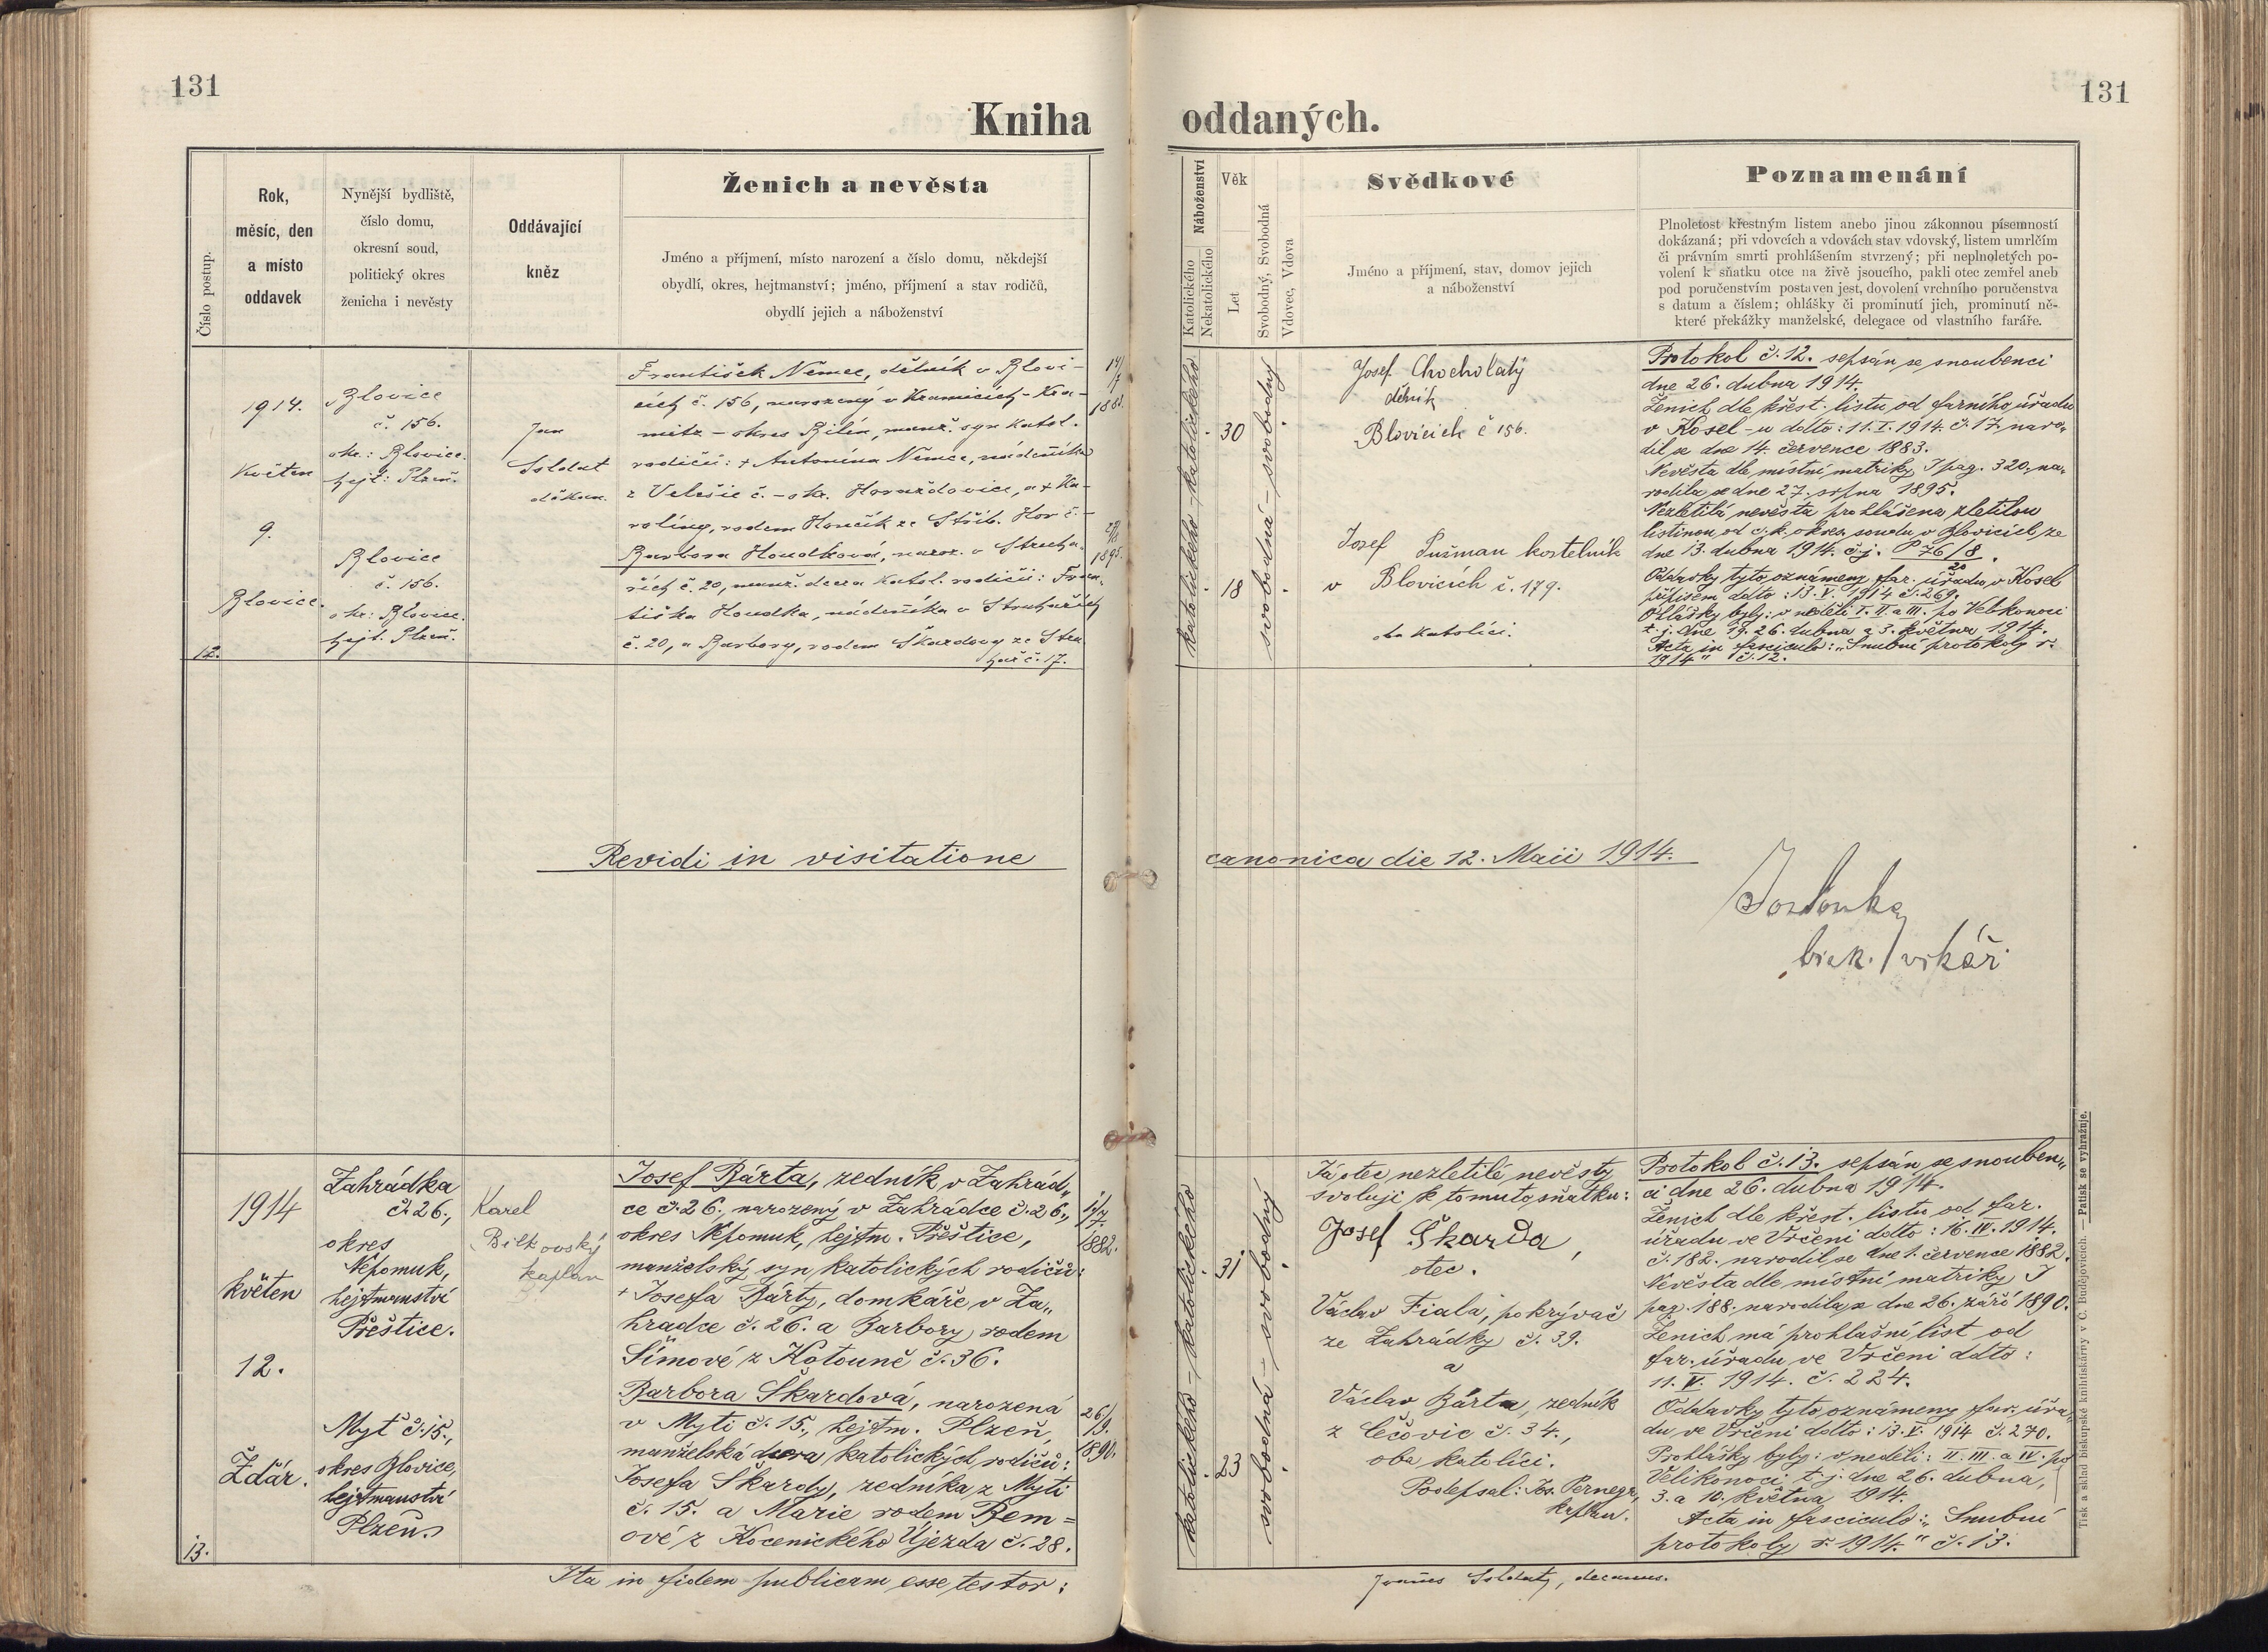 131
131
Kniha oddaných.
Číslo postup.
Rok,
měsíc, den
a místo
oddavek
Nynější bydliště,
číslo domu,
okresní soud,
politický okres
ženicha i nevěsty
Oddávající
kněz
Ženich a nevěsta
Jméno a příjmení, místo narození a číslo domu, někdejší
obydlí, okres, hejtmanství; jméno, příjmení a stav rodičů,
obydlí jejich a náboženství
Náboženství
Katolického
Nekatolického
Věk
Let
Svobodný, Svobodná
Vdovec, Vdova
Svědkové
Jméno a příjmení, stav, domov jejich
a náboženství
Poznamenání
Plnoletost křestným listem anebo jinou zákonnou písemností
dokázaná; při vdovcích a vdovách stav vdovský, listem umrlčím
či právním smrti prohlášením stvrzený; při neplnoletých po-
volení k sňatku otce na živě jsoucího, pakli otec zemřel aneb
pod poručenstvím postaven jest, dovolení vrchního poručenstva
s datum a číslem; ohlášky či prominutí jich, prominutí ně-
které překážky manželské, delegace od vlastního faráře.
1914.
Květen
9.
Blovice.
12.
Blovice
č. 156.
okr.: Blovice.
hejt: Plzeň.
Blovice
č. 156.
okr: Blovice.
hejt. Plzeň.
Jan
Soldat
děkan.
František Němec, dělník v Blovi-
cích č. 156, narozený v - Kra-
mitz - okres Bilín, manž. syn katol.
rodičů: + Antonína Němce, nádeníka
z Velešic č. - okr. Horažďovice, a + Ka-
rolíny, rodem ze Stříb. Hor č. -
14/7
1883.
Barbora Houdková, naroz. v Struha-
řích č. 20, manž. dcera katol. rodičů: Fran-
tiška Houdka, nádeníka v Struhařích
č. 20, a Barbory, rodem Škardovy ze Stru
hař č. 17.
27/8
1895.
katolického - katolického
30
18
svobodná - svobodný
Josef Chocholatý
dělník
Blovicích č 156.
Josef Pužman kostelník
v Blovicích č. 179.
oba katolíci.
Protokol č. 12. sepsán se snoubenci
dne 26. dubna 1914.
Ženich dle křest. listu od farního úřadu
v Kosel-u ddto: 11. I. 1914. č. 17. naro-
dil se dne 14. července 1883.
Nevěsta dle místní matriky I pag. 320, na-
rodila se dne 27. srpna 1895.
Nezletilá nevěsta prohlášena zletilou
listinou od c. k. okres. soudu v Blovicích ze
dne 13. dubna 1914. č. j. P 76/8
20
Oddavky tyto oznámeny far. úřadu v Kosel
přípisem ddto: 13. V. 1914 č. 269.
Ohlášky byly: v neděli I. II. a III. po Velkonoci
t. j. dne 19. 26. dubna a 3. května 1914.
Acta in fasciculo: „Snubní protokoly r.
1914“ č. 12.
Revidi in visitatione canonica die 12. Maii 1914.
bisk. vikář
1914
květen
12.
Ždár.
13.
Zahrádka
č. 26.,
okres
Nepomuk,
hejtmanství
Přeštice.
Myť č. 15.,
okres Blovice,
hejtmanství
Plzeň.
Karel
Bilkovský
kaplan
Josef Bárta, zedník v Zahrád„
ce č. 26., narozený v Zahrádce č. 26.,
okres Nepomuk, hejtm. Přeštice,
manželský syn katolických rodičů:
+ Josefa Bárty, domkáře v Za„
hradce č. 26. a Barbory rodem
Šímové z Kotouně č. 36.
1/7.
1882.
Barbora Škardová, narozená
v Myti č. 15., hejtm. Plzeň,
manželská dcera katolických rodičů:
Josefa Škardy, zedníka z Myti
č. 15. a Marie rodem Bem=
ové z Kocenického Újezda č. 28.
26/9.
1890.
katolického - katolického
31
23
svobodná - svobodný
Já otec nezletilé nevěsty
svoluji k tomuto sňatku:
Josef Škarda,
otec.
Václav Fiala, pokrývač
ze Zahrádky č. 39.
a
Václav Bárta, zedník
z Čečovic č. 34.,
oba katolíci.
Podepsal: Jos. Pernegr,
kaplan.
Protokol č. 13. sepsán se snouben„
ci dne 26. dubna 1914.
Ženich dle křest. listu od far.
úřadu ve Vrčeni ddto: 16. IV. 1914.
č. 182. narodil se dne 1. července 1882.
Nevěsta dle místní matriky I
pag. 188. narodila se dne 26. září 1890.
Ženich má prohlašní list od
far. úřadu ve Vrčeni ddto:
11. V. 1914. č. 224.
Oddavky tyto oznámeny far. úřa„
du ve Vrčeni ddto: 13. V. 1914 č. 270.
Prohlášky byly: v neděli: II. III. a IV. po
Velikonoci t. j. dne 26. dubna,
3. a 10. května 1914.
Acta in fasciculo: „Snubní
protokoly r. 1914.“ č. 13.
Ita in fidem publicam esse testor: Joannes Soldat, decanus.
Tisk a sklad biskupské knihtiskárny v Č. Budějovicích. — Patisk se vyhražuje.